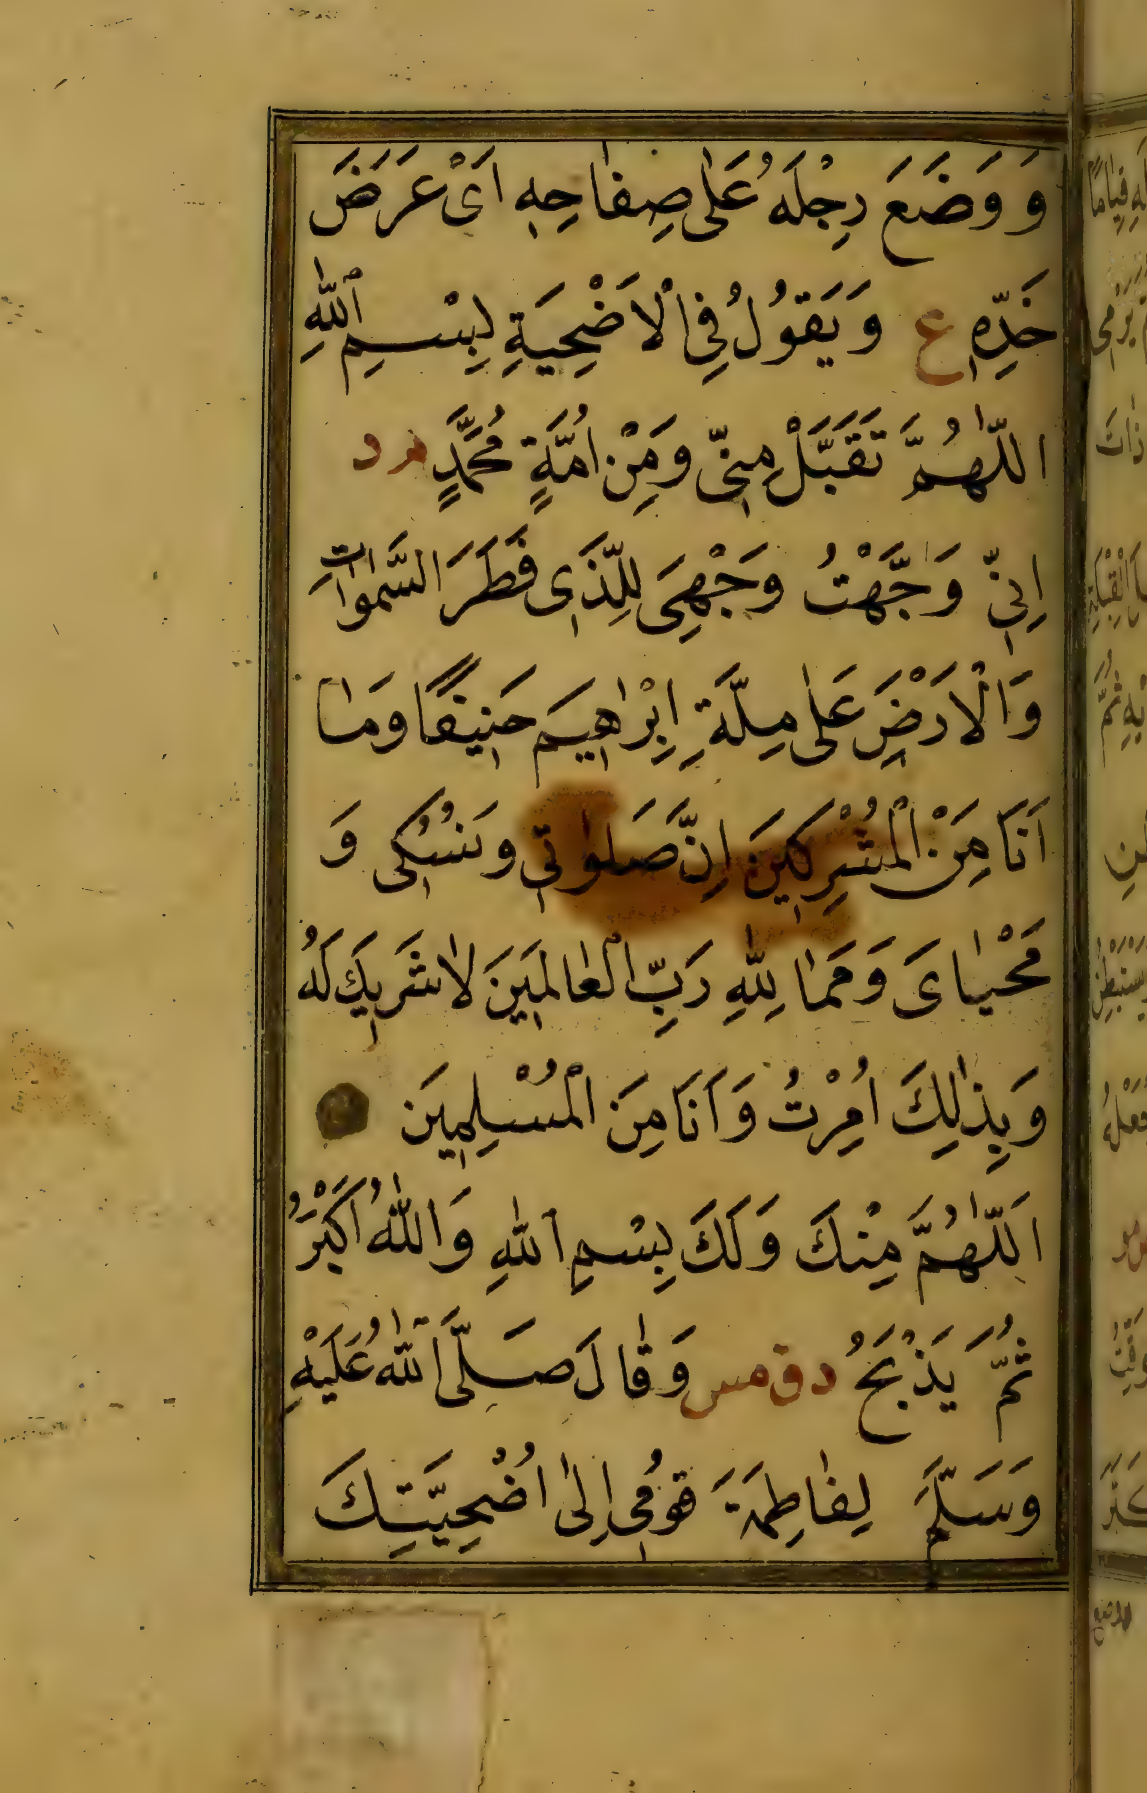 وَ وَضَعَ رِجْلَهُ عَلٰى صِفَاحِهِ اَىْ عَرَضَ
خَدِّهِ ع وَيَقُولُ فِى الْاَضْحِيَةِ بِسْمِ اللّٰهِ
اللّٰهُمَّ تَقَبَّلْ مِنِّى وَمِنْ اُمَّةِ مُحَمَّدٍ م د
اِنِّى وَجَّهْتُ وَجْهِىَ لِلَّذِى فَطَرَ السَّمٰوَاتِ
وَالْاَرْضَ عَلٰى مِلَّةِ اِبْرٰاهِيمَ حَنِيفًا وَمَا
اَنَا مِنَ الْمُشْرِكِينَ اِنَّ صَلٰوتِى وَنُسُكِى وَ
مَحْيٰاىَ وَمَمَا لِلّٰهِ رَبِّ الْعٰالَمِينَ لاٰ شَرِيكَ لَهُ
وَبِذٰلِكَ اُمِرْتُ وَاَنَا مِنَ الْمُسْلِمِينَ
اَللّٰهُمَّ مِنْكَ وَلَكَ بِسْمِ اللّٰهِ وَاللّٰهُ اَكْبَرُ
ثُمَّ يَذْبَحُ د ق مس وَقٰالَ صَلَّى اللّٰهُ عَلَيْهِ
وَسَلَّمَ لِفٰاطِمَةَ قُومِى اِلٰى اُضْحِيَّتِكَ